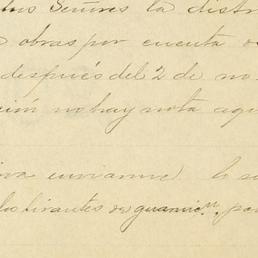 los Señores la distr
obras por cuenta d
después del 2 de no
no hay nota aqu
enviarme lo su
tirantes de guarnic.n par